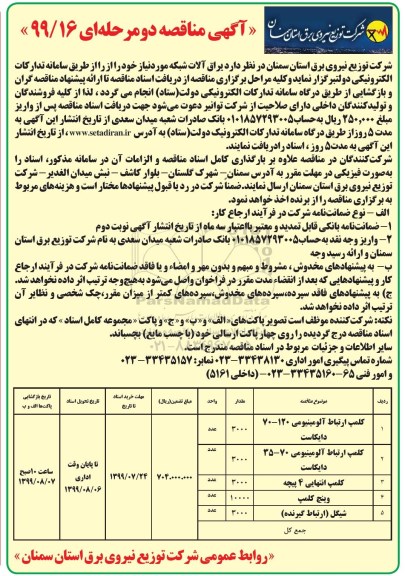 شرکت توزیع نیروی برق استان سمنان
« آگهی مناقصه دو مرحله‌ای ۹۹/۱۶ »
شرکت توزیع نیروی برق استان سمنان در نظر دارد یراق آلات شبکه مورد نیاز خود را از طریق سامانه تدارکات
الکترونیکی دولت برگزار نماید و کلیه مراحل برگزاری مناقصه از دریافت اسناد مناقصه تا ارائه پیشنهاد مناقصه گران
و بازگشایی از طریق درگاه سامانه تدارکات الکترونیکی دولت (ستاد) انجام می گردد ، لذا از کلیه فروشندگان
و تولیدکنندگان داخلی دارای صلاحیت از شرکت توانیر دعوت می‌شود جهت دریافت اسناد مناقصه پس از واریز
مبلغ ۲۵۰,۰۰۰ ریال به حساب ۰۱۰۱۸۵۷۲۹۳۰۰۵ بانک صادرات شعبه میدان سعدی از تاریخ انتشار این آگهی به
مدت ۵ روز از طریق درگاه سامانه تدارکات الکترونیک دولت (ستاد) به آدرس www.setadiran.ir ، از تاریخ انتشار
این آگهی به مدت ۵ روز ، اسناد را دریافت نمایند.
شرکت‌کنندگان در مناقصه علاوه بر بارگذاری کامل اسناد مناقصه و الزامات آن در سامانه مذکور، اسناد را
به‌صورت فیزیکی در مهلت مقرر به آدرس سمنان– شهرک گلستان– بلوار کاشف – نبش میدان الغدیر – شرکت
توزیع نیروی برق استان سمنان ارسال نمایند. ضمنا شرکت در رد یا قبول پیشنهادها مختار است و هزینه‌های مربوط
به برگزاری مناقصه را از برنده اخذ خواهد نمود.
الف – نوع ضمانت‌نامه شرکت در فرآیند ارجاع کار:
۱– ضمانت‌نامه بانکی قابل تمدید و معتبر با اعتبار سه ماه از تاریخ انتشار آگهی نوبت دوم
۲– واریز وجه نقد به حساب ۰۱۰۱۸۵۷۲۹۳۰۰۵ بانک صادرات شعبه میدان سعدی به نام شرکت توزیع برق استان
سمنان و ارائه رسید وجه
ب– به پیشنهادهای مخدوش ، مشروط و مبهم و بدون مهر و امضاء و یا فاقد ضمانت‌نامه شرکت در فرآیند ارجاع
کار و پیشنهادهایی که بعد از انقضاء مدت مقرر در فراخوان واصل می‌شود به‌هیچ‌وجه ترتیب اثر داده نخواهد شد.
ج) به پیشنهادهای فاقد سپرده، سپرده‌های مخدوش، سپرده‌های کمتر از میزان مقرر، چک شخصی و نظایر آن
ترتیب اثر داده نخواهد شد.
نکته: شرکت‌کننده موظف است تصویر پاکت‌های «الف» و «ب» و «ج» و پاکت « مجموعه کامل اسناد » که در انتهای
اسناد مناقصه درج گردیده را روی چهار پاکت ارسالی خود (با چسب مایع) بچسباند.
سایر اطلاعات و جزئیات مربوط در اسناد مناقصه مندرج است.
شماره تماس پیگیری امور اداری ۳۳۴۳۸۱۳۰-۰۲۳ نمابر: ۳۳۴۳۵۱۵۷-۰۲۳
و امور فنی ۶۵-۳۳۴۳۵۱۶۰-۰۲۳ - (داخلی ۵۱۶۱)
ردیف موضوع مناقصه مقدار واحد مبلغ تضمین(ریال) مهلت خرید اسناد تا تاریخ تاریخ تحویل اسناد تاریخ بازگشایی پاکت‌ها الف و ب
۱ کلمپ ارتباط آلومینیومی ۱۲۰-۷۰ دایکاست ۳۰۰۰ عدد
۲ کلمپ ارتباط آلومینیومی ۷۰-۳۵ دایکاست ۳۰۰۰ عدد
۳ کلمپ انتهایی ۴ پیچه ۳۰۰۰ عدد
۴ وینچ کلمپ ۱۰۰۰۰ عدد
۵ شیگل (ارتباط گیرنده) ۳۰۰۰ عدد
۷۰۲.۰۰۰.۰۰۰ ۱۳۹۹/۰۷/۲۴ تا پایان وقت اداری ۱۳۹۹/۰۸/۰۶ ساعت ۱۰ صبح ۱۳۹۹/۰۸/۰۷
جمع کل
« روابط عمومی شرکت توزیع نیروی برق استان سمنان »